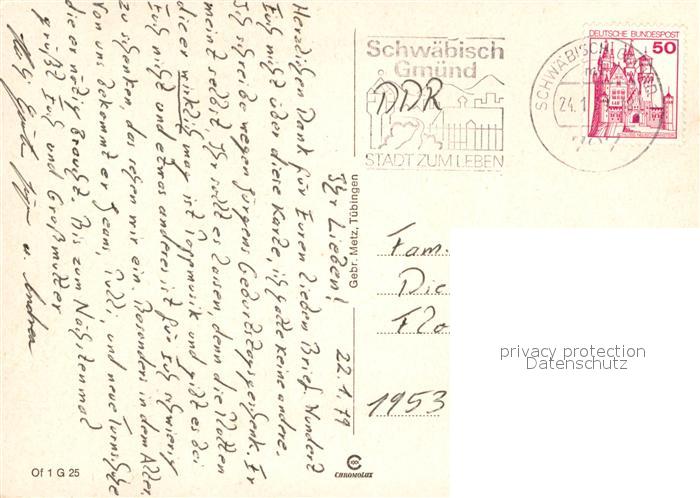 22.1.79
Ihr Lieben!
Herzlichen Dank für Euren lieben Brief. Wundert
Euch nicht über diese Karte, ich hatte keine andere.
Ich schreibe wegen Jürgens Geburtstagsgeschenk. Er
meint selbst, Ihr sollt es lassen, denn die Platten
die er wirklich mag ist Popmusik und gibt es bei
Euch nicht und etwas anderes ist für Euch schwierig
zu schenken, das sehen wir ein. Besonders in dem Alter.
Von uns bekommt er Jeans, Pulli, und neue Turnschuhe
die er nötig braucht. Bis zum Nächstenmal
grüßt Euch und Großmutter
u. Andrea
Schwäbisch
Gmünd
DDR
STADT ZUM LEBEN
DEUTSCHE BUNDESPOST
50
SCHWÄBISCH
24.1
Gebr. Metz, Tübingen
Fam.
Die
Flo
1953
privacy protection
Datenschutz
Of 1 G 25
CHROMOLUX